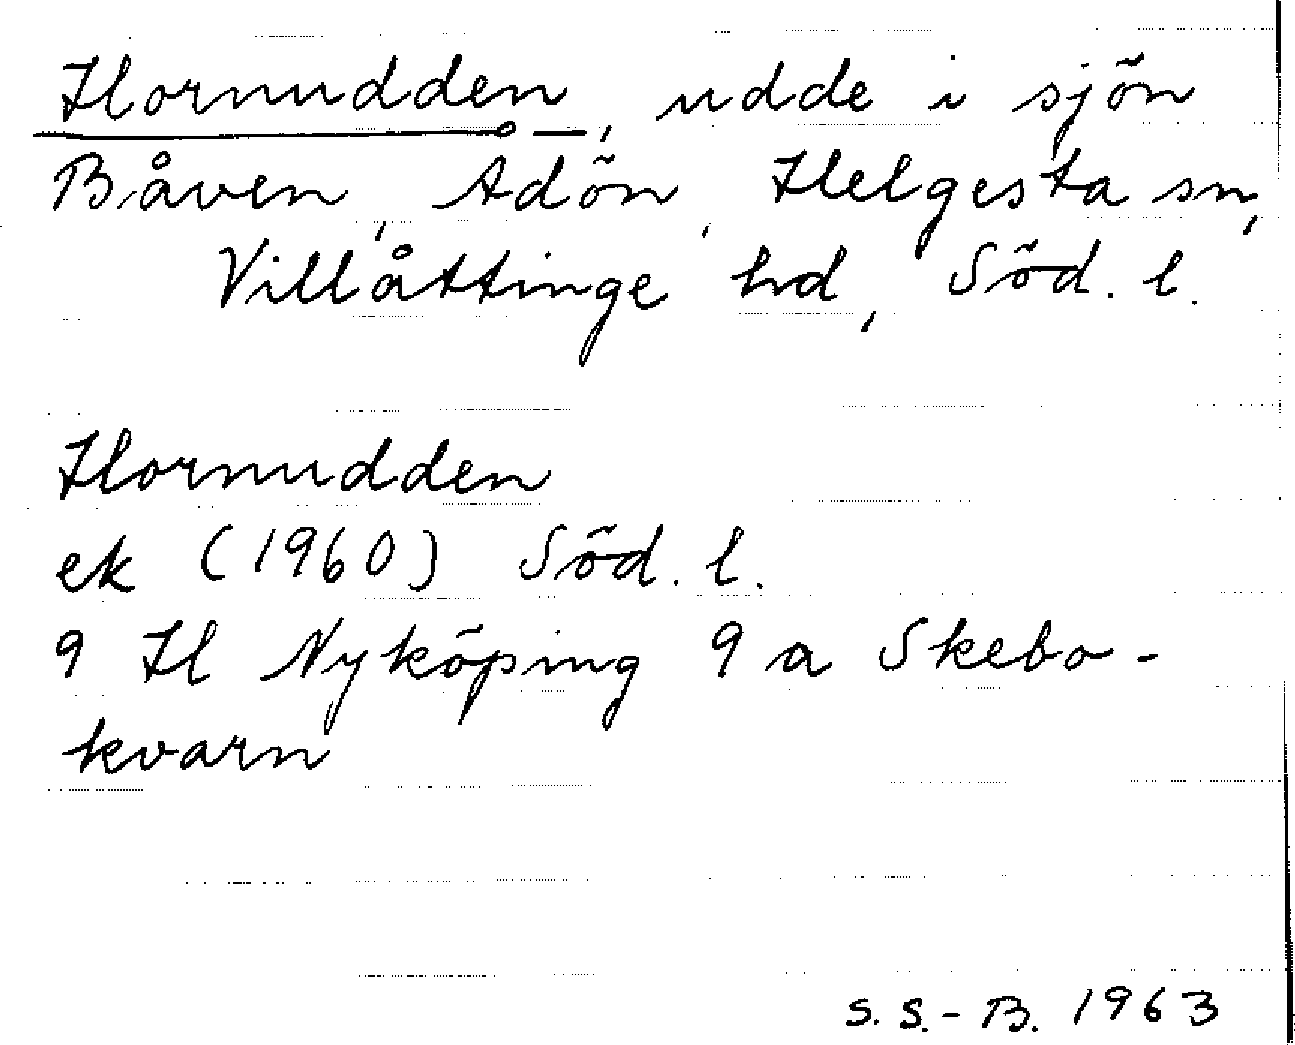 Hornudden, udde i sjön
Båven, Ådön, Helgesta sn,
Villåttinge hd, Söd. l.
Hornudden
ek (1960) Söd. l.
9 H Nyköping 9 a Skebo-
kvarn
S. S.-B. 1963